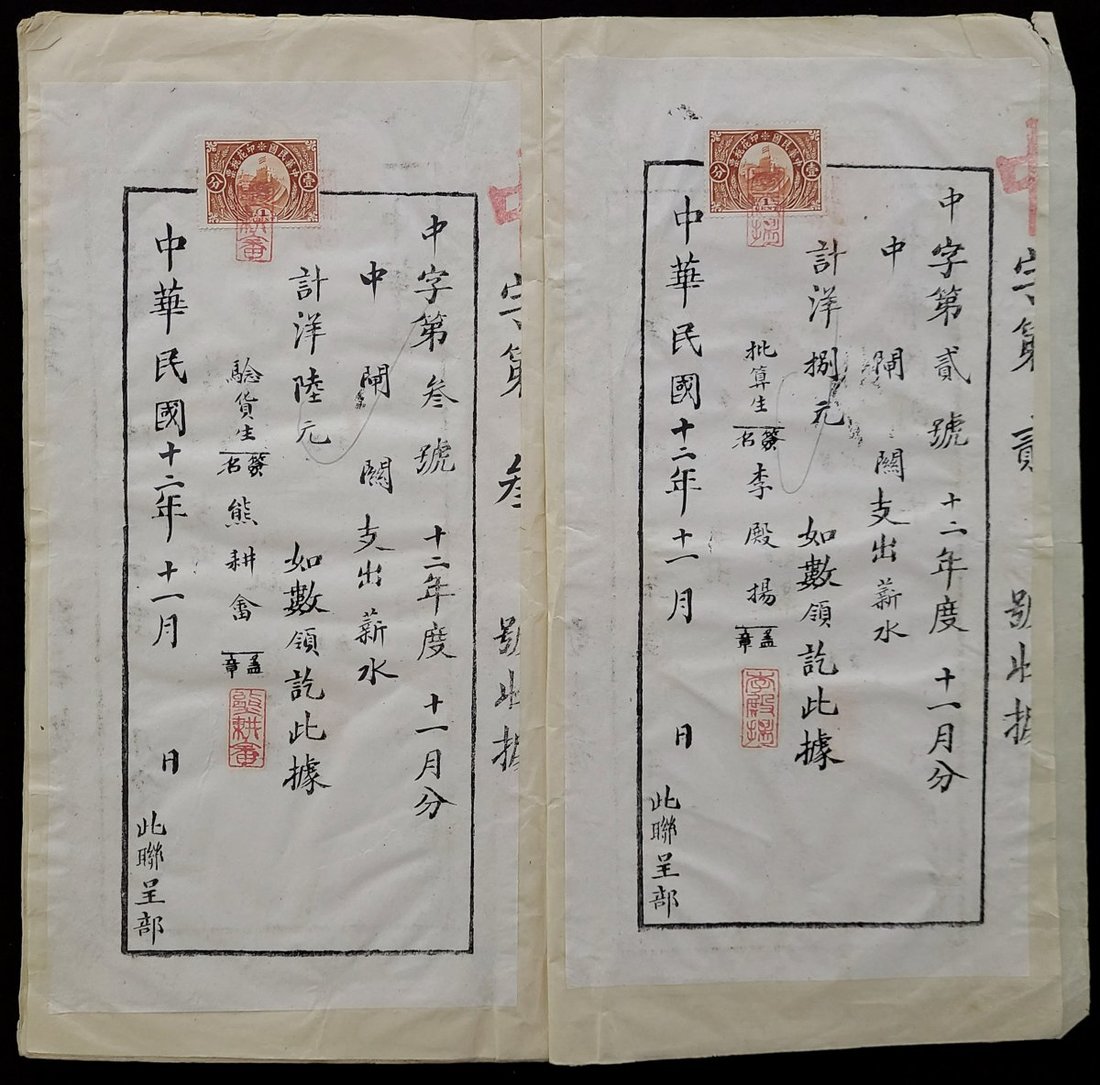 字第貳號收據
中字第貳號 十二年度 十一月分
中閘關支出薪水
計洋捌元 如數領訖此據
批算生 簽名 李殿揚 蓋章
李殿揚
中華民國印花稅票
壹分
中華民國十二年十一月 日
此聯呈部
字第叁號收據
中字第叁號 十二年度 十一月分
中閘關支出薪水
計洋陸元 如數領訖此據
驗貨生 簽名 熊耕畬 蓋章
熊耕畬
中華民國印花稅票
壹分
中華民國十二年十一月 日
此聯呈部